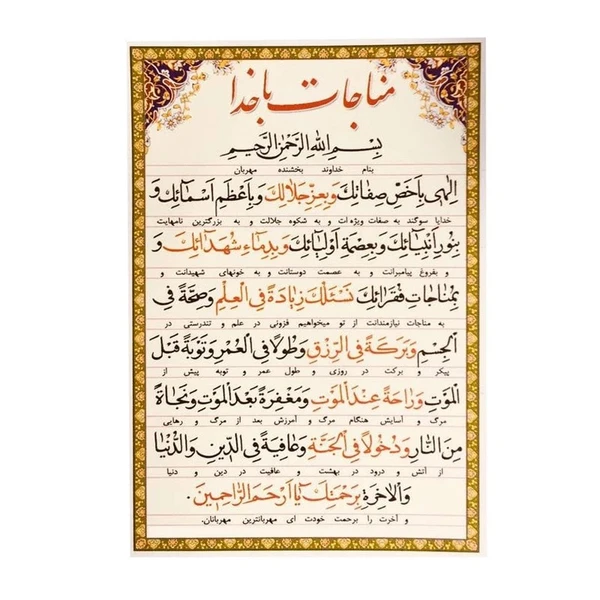 مناجات با خدا
بِسْمِ اللهِ الرَّحْمٰنِ الرَّحیمِ
بنام خداوند بخشنده مهربان
اِلٰهی بِاَخَصِّ صِفاتِكَ وَبِعِزِّ جَلالِكَ وَبِاَعْظَمِ اَسْمائِكَ وَ
خدایا سوگند به صفات ویژه ات و به شکوه جلالت و به بزرگترین نامهایت
بِنُورِ اَنْبِیائِكَ وَبِعِصْمَةِ اَوْلِیائِكَ وَبِدِماءِ شُهَدائِكَ وَ
و بفروغ پیامبرانت و به عصمت دوستانت و به خونهای شهیدانت و
بِمُناجاتِ فُقَرائِكَ نَسْئَلُكَ زِیادَةً فِی الْعِلْمِ وَصِحَّةً فِی
به مناجات نیازمندانت از تو میخواهیم فزونی در علم و تندرستی در
الْجِسْمِ وَبَرَكَةً فِی الرِّزْقِ وَطُولاً فِی الْعُمْرِ وَتَوْبَةً قَبْلَ
پیکر و برکت در روزی و طول عمر و توبه پیش از
الْمَوْتِ وَراحَةً عِنْدَ الْمَوْتِ وَمَغْفِرَةً بَعْدَ الْمَوْتِ وَنَجاةً
مرگ و آسایش هنگام مرگ و آمرزش بعد از مرگ و رهایی
مِنَ النّارِ وَدُخُولاً فِی الْجَنَّةِ وَعافِیَةً فِی الدّینِ وَالدُّنْیا
از آتش و درود در بهشت و عافیت در دین و دنیا
وَالْاخِرَةِ بِرَحْمَتِكَ یا اَرْحَمَ الرّاحِمینَ.
و آخرت را برحمت خودت ای مهربانترین مهربانان.